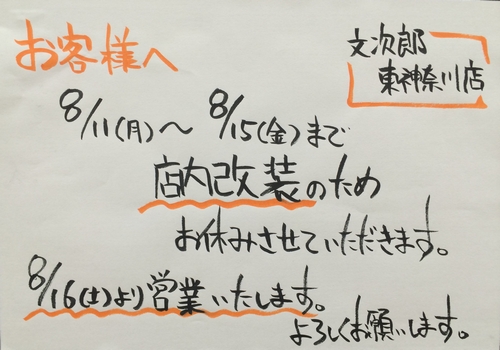 お客様へ
文次郎
東神奈川店
8/11(月)〜8/15(金)まで
店内改装のため
お休みさせていただきます。
8/16(土)より営業いたします。
よろしくお願いします。